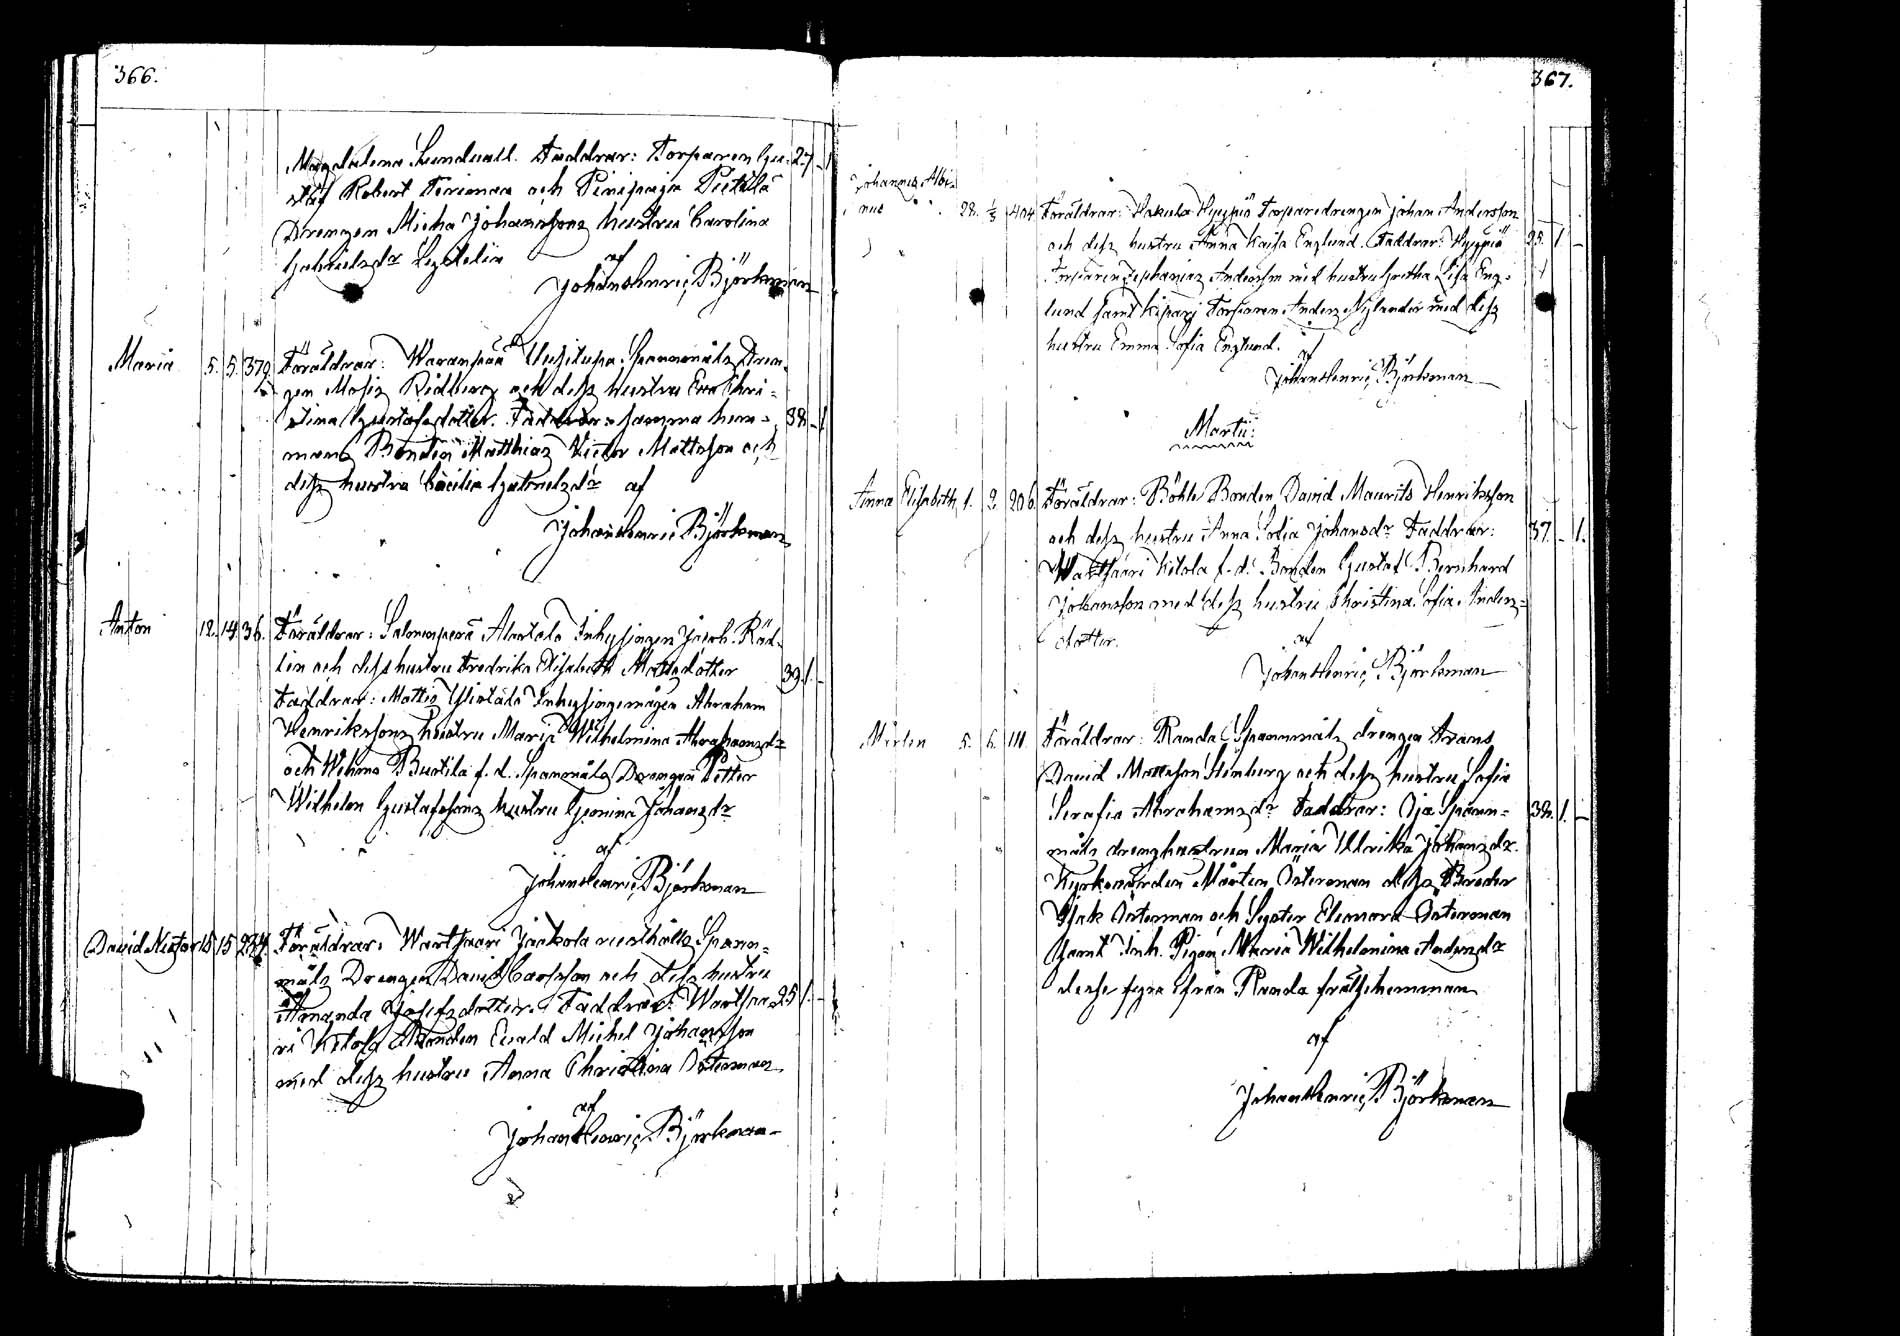 366.
Magdalena Sundvall. Faddrar: Torparen Gu- 27 - 1
staf Robert Ferinman och Pinipajo Pietilä
Drengen Micha Johanssons hustru Carolina
Gabrielsdr Lydelin
af
Johan Henric Björkman
Maria 5. 5. 379. Föräldrar: Waranpää Uusitupa Spannmåls Dren-
gen Mosis Ridberg och dess hustru Eva Chri-
stina Gustafsdotter. Faddrar: samma hem- 38 - 1
mans Bonden Matthias Victor Mattsson och
dess hustru Cecilia Gabrielsdr af
Johan Henric Björkman
Anton 12. 14. 36. Föräldrar: Salmenperä Alastalo Inhysingen Jacob Räd-
lin och dess hustru Fredrika Elisabeth Mattsdotter 39. 1. -
Faddrar: Mattis Ylistalo Inhysingemågen Abraham
Henrikssons hustru Maria Wilhelmina Abrahamsdr
och Wehmo Burtila f. d. Spannmåls Drengen Petter
Wilhelm Gustafssons hustru Johansdr
af
Johan Henric Björkman
David Nestor 15 15 234. Föräldrar: Wartsaari Jackola rusthålls Spann-
måls Drengen David Carlsson och dess hustru
Amanda Josefsdotter. Faddrar: Wartsaa- 25 1. -
ri Kitola Bonden Evald Michel Johansson
med dess hustru Anna Christina Österman
af
Johan Henric Björkman
367.
Johannes Albi-
nus 28. 1/3 404 Föräldrar: Hakula Hyyppiö Torparedrengen Johan Andersson
och dess hustru Anna Kaisa Englund. Faddrar: Hyyppiö 25. 1 -
Torparen Zephanias Andersson med hustru Gretha Lisa Eng-
lund samt Torparen Anders Nylander med dess
hustru Emma Sofia Englund.
af
Johan Henric Björkman
Martii:
Anna Elisabeth 1. 2. 206. Föräldrar: Böhle Bonden David Maurits Henriksson
och dess hustru Anna Sofia Johansdr Faddrar: 37. - 1.
Wartsaari Kitola f. d. Bonden Gustaf Bernhard
Johansson med dess hustru Christina Sofia Anders-
dotter.
af
Johan Henric Björkman
Mårten 5. 6. 111. Föräldrar: Randa Spannmåls drengen Frans
David Mattsson Stenberg och dess hustru Sofia
Serafia Abrahamsdr Faddrar: Oja Spann- 32. 1. -
måls drenghustrun Maria Ulrika Johansdr.
Kyrkovärden Mårten Österman dess Broder
Isak Österman och Syster Eleonora Österman
samt Inh. Pigan Maria Wilhelmina Andersdr
desse fyra ifrån Randa frälsehemman
af
Johan Henric Björkman